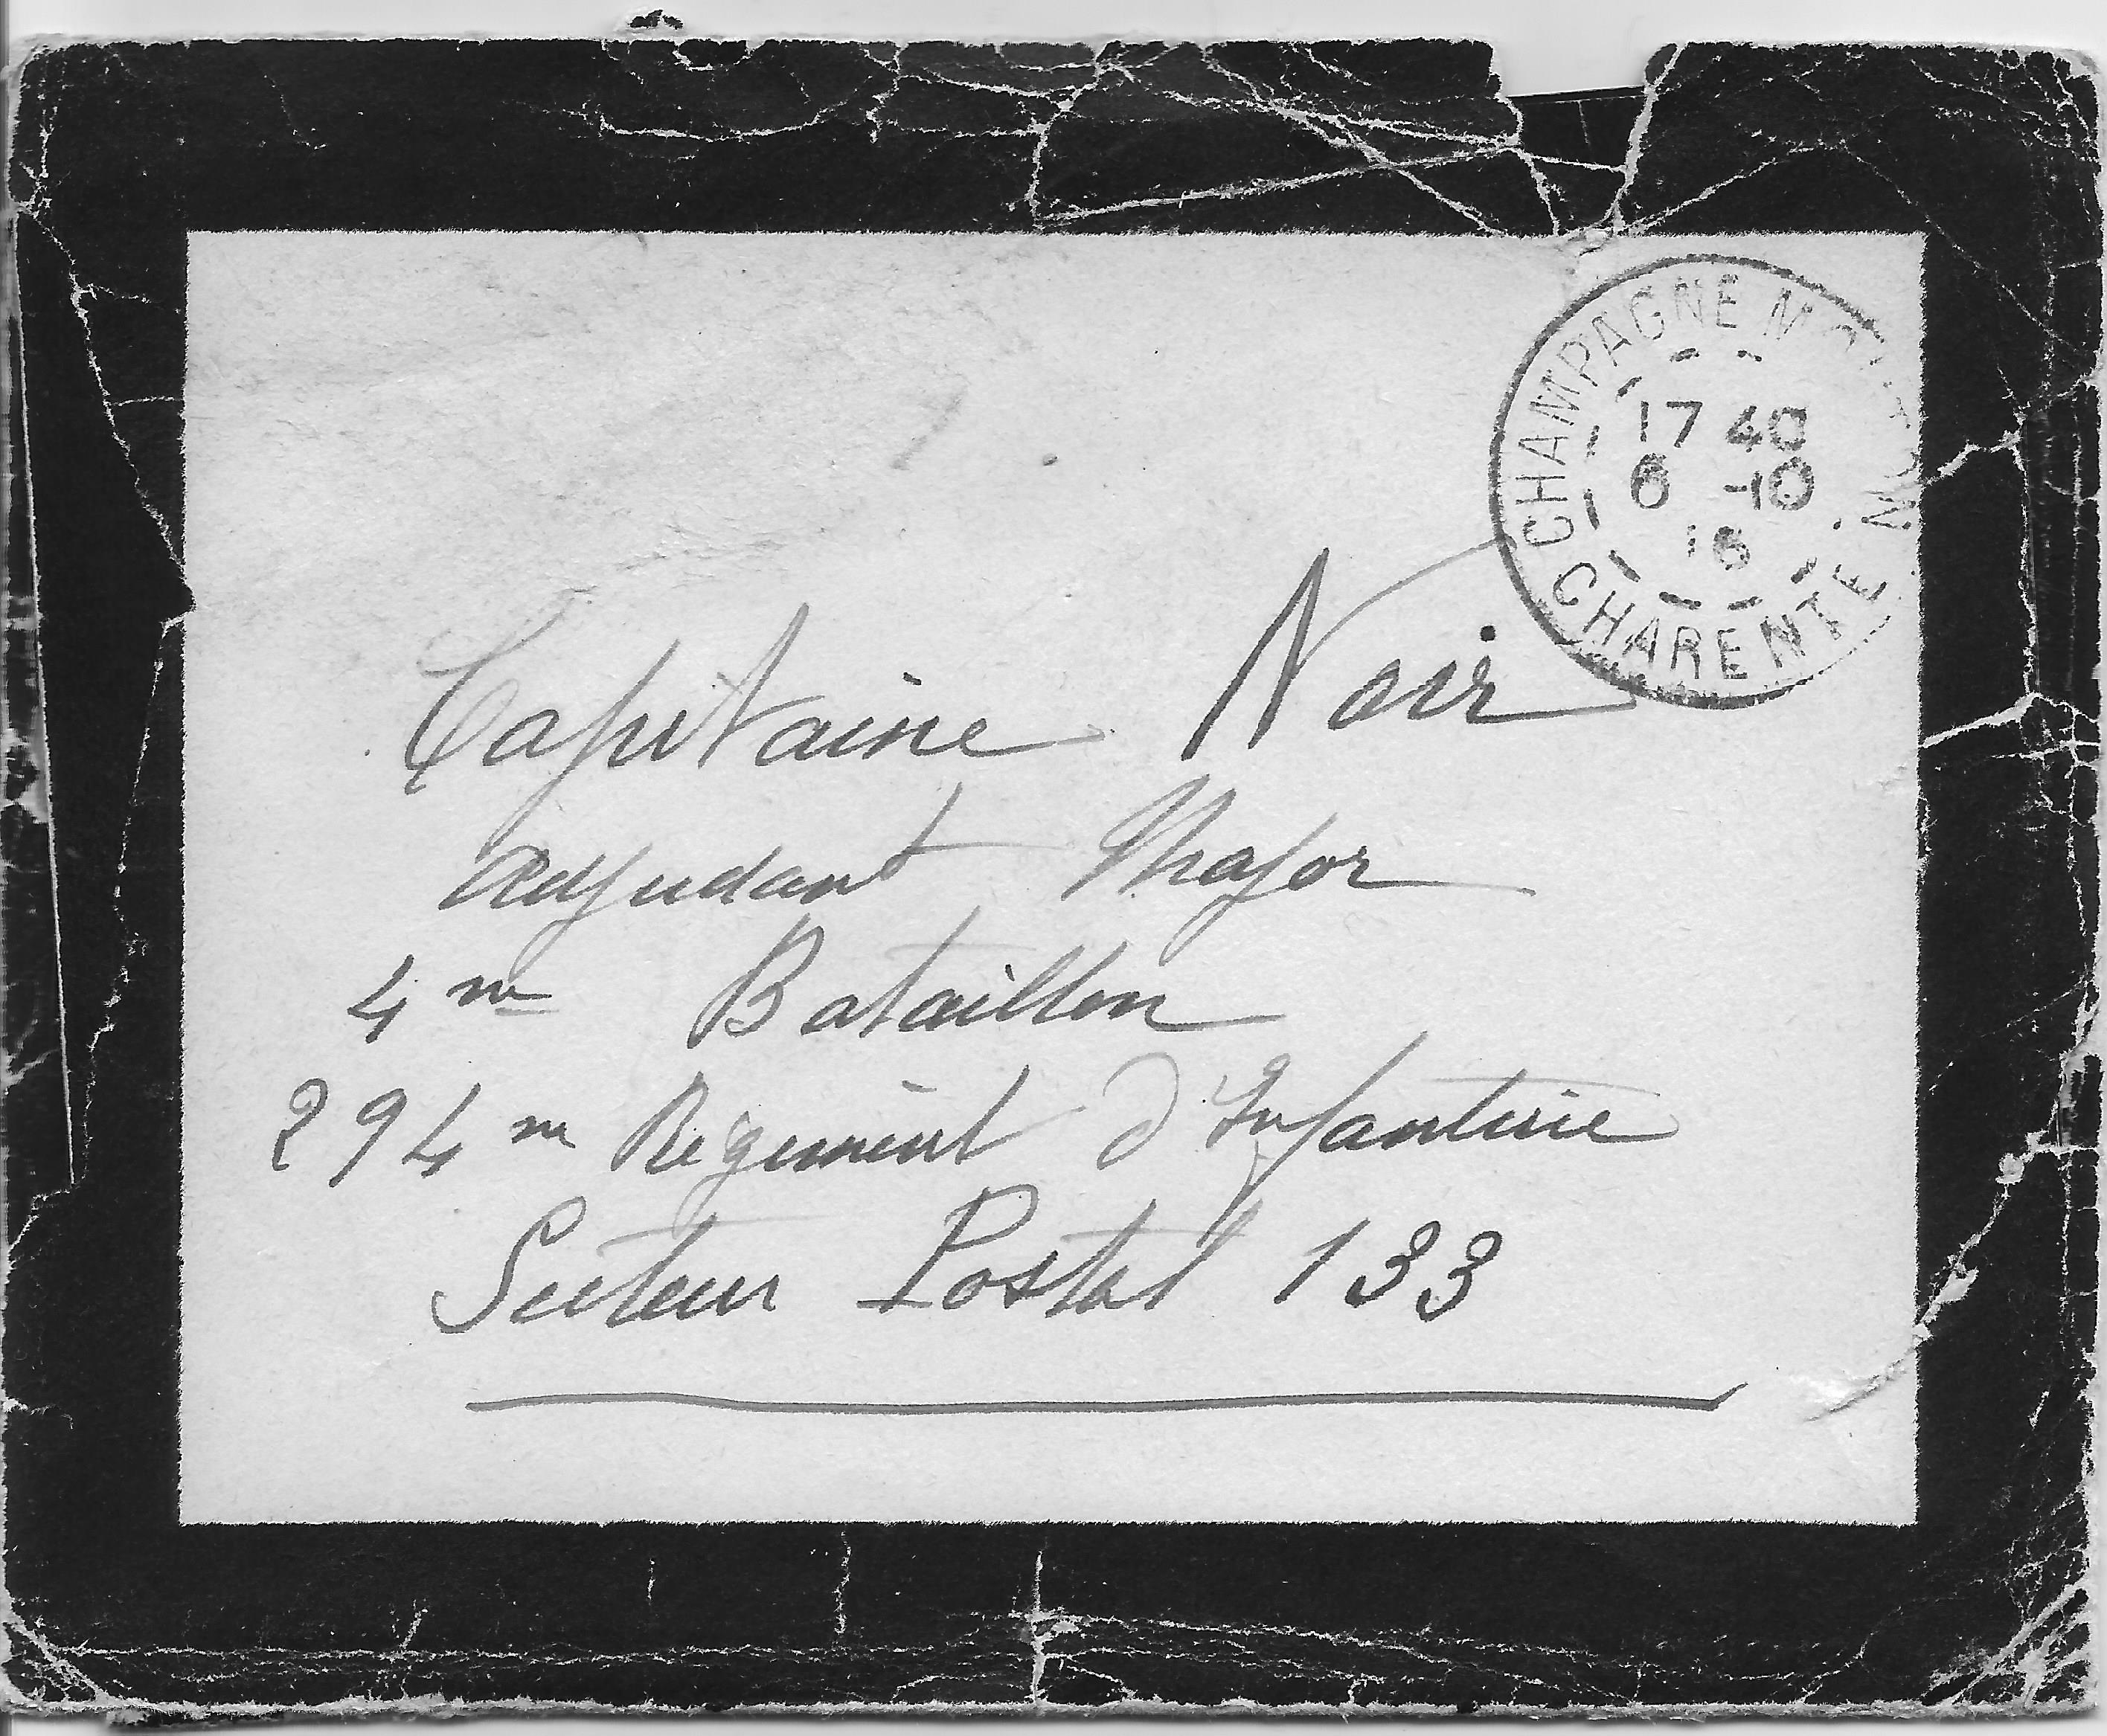 CHAMPAGNE MOUTON
17 40
6 -10
16
CHARENTE
Capitaine Noir
Adjudant Major
4me Bataillon
294me Régiment d'Infanterie
Secteur Postal 133